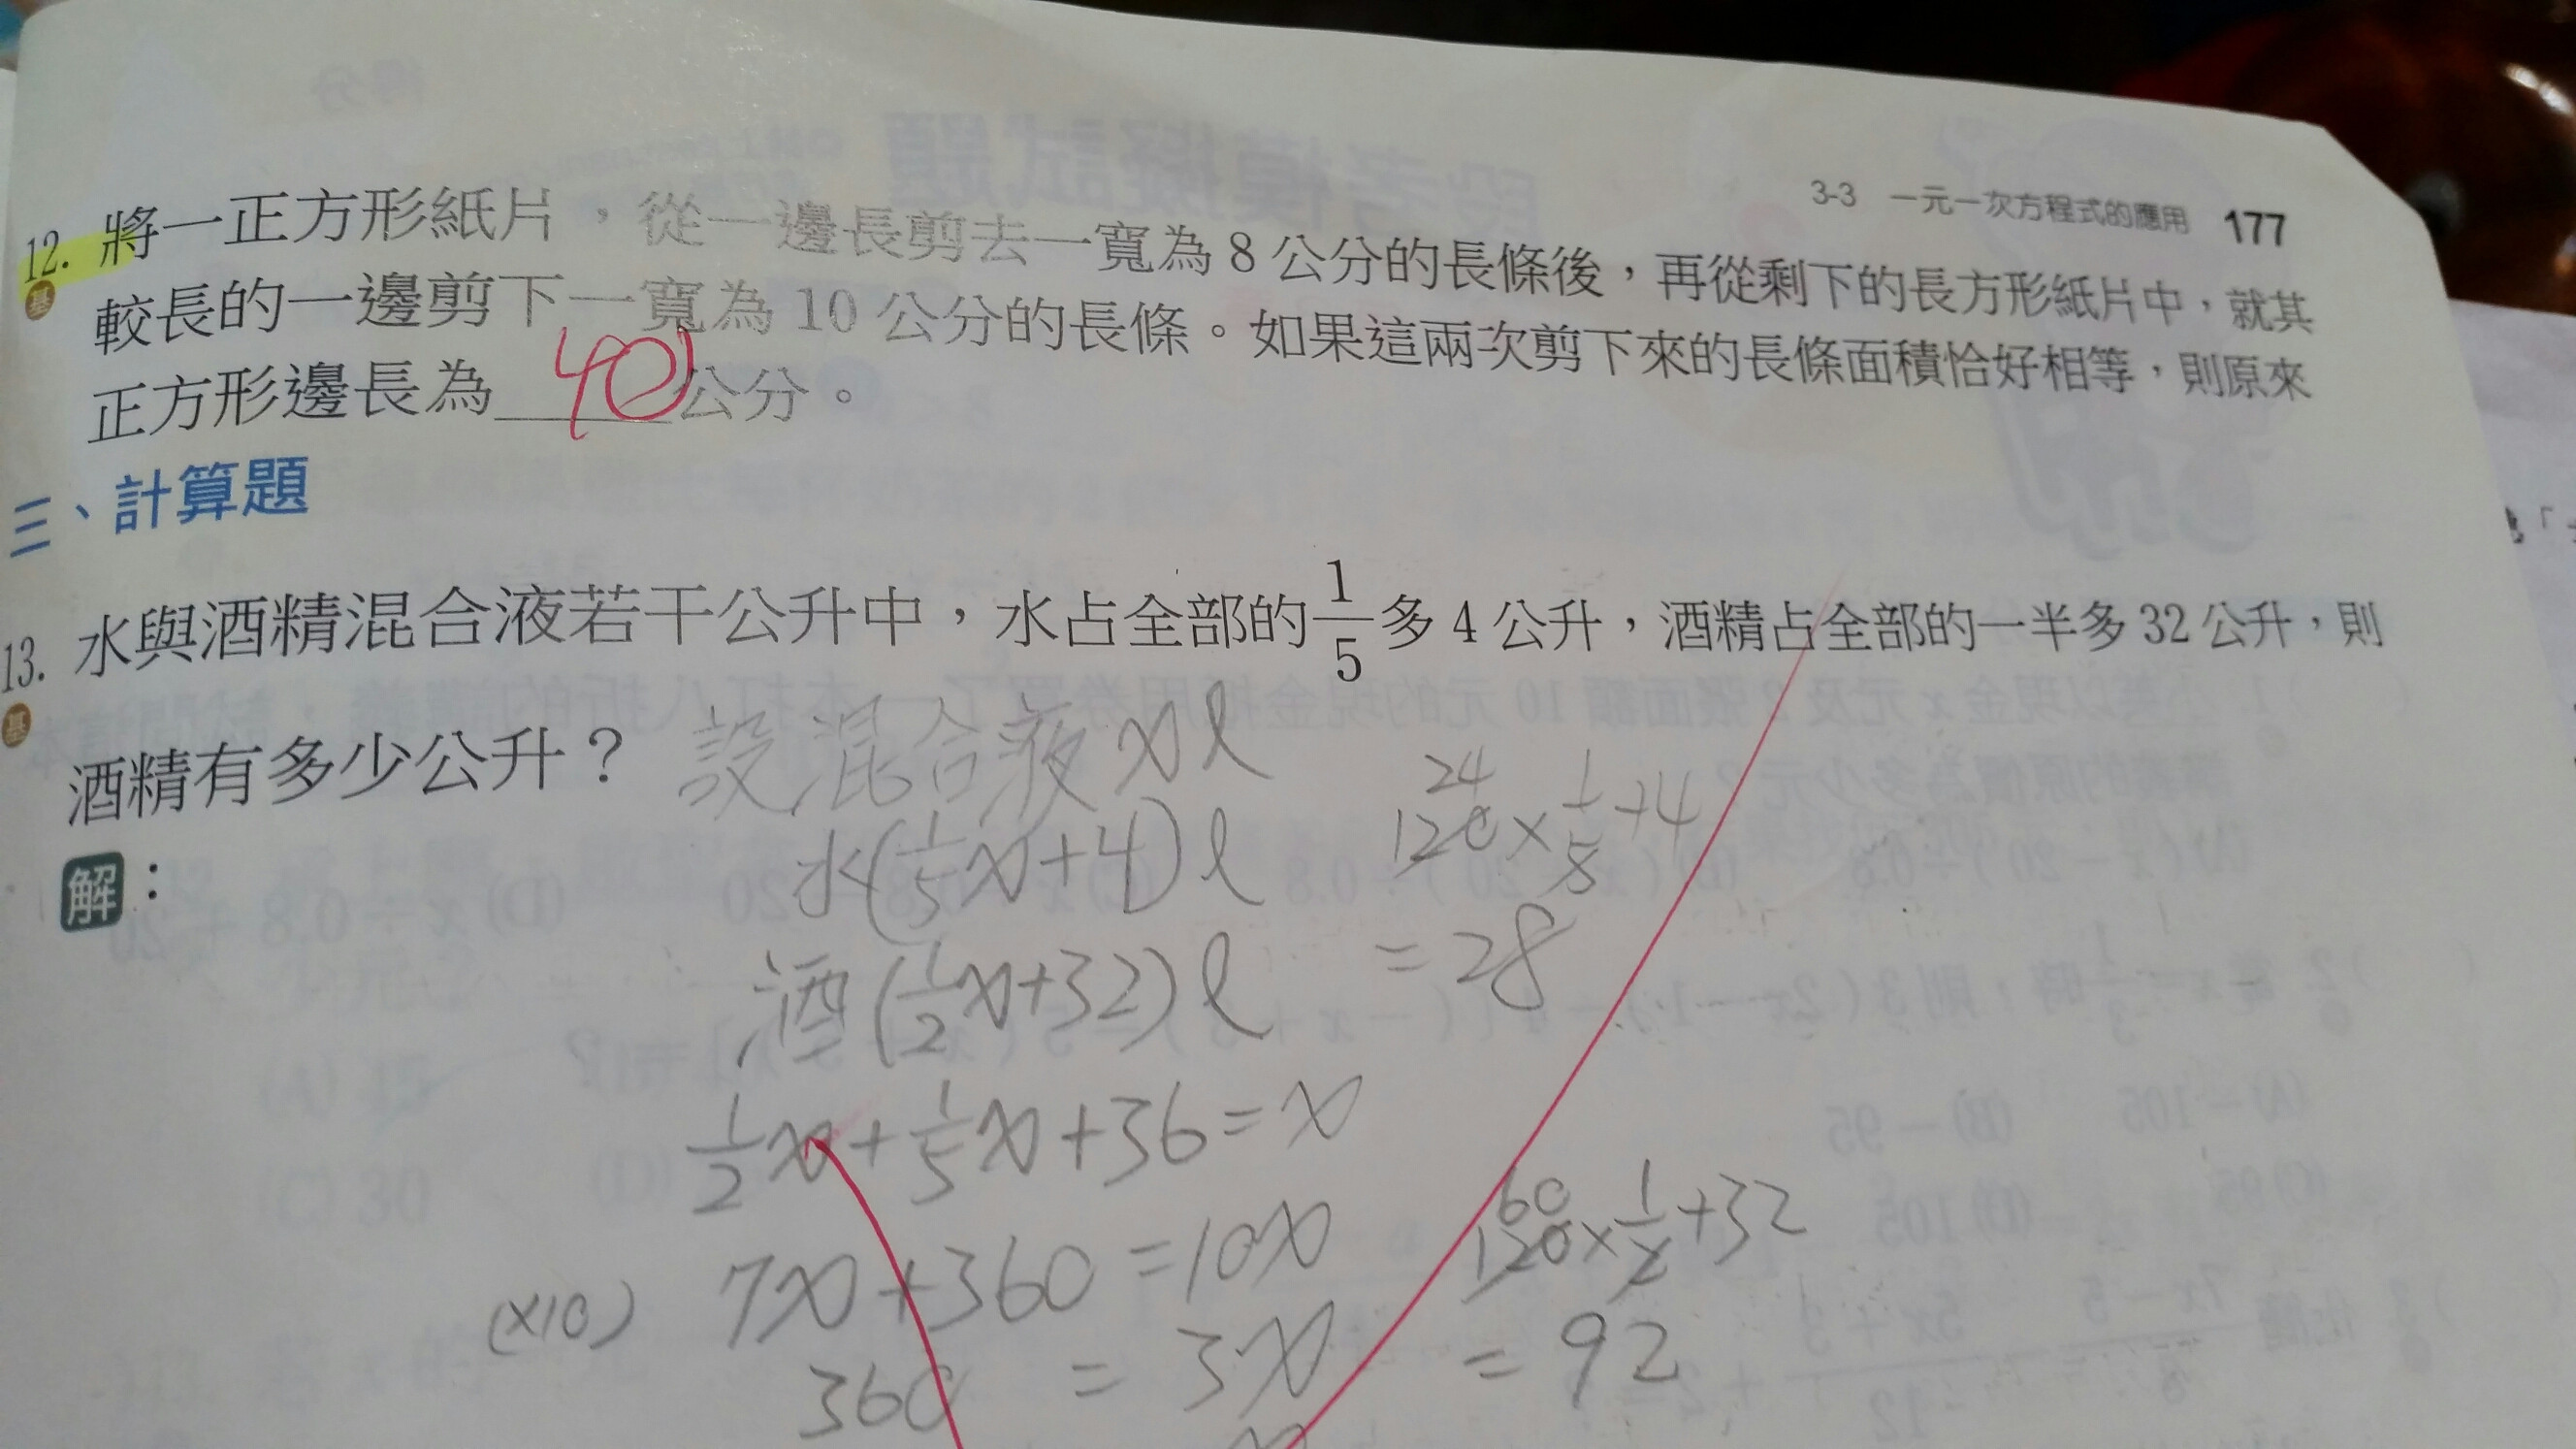 3-3 一元一次方程式的應用 177
12. 將一正方形紙片，從一邊長剪去一寬為 8 公分的長條後，再從剩下的長方形紙片中，就其
基
較長的一邊剪下一寬為 10 公分的長條。如果這兩次剪下來的長條面積恰好相等，則原來
正方形邊長為 40 公分。
三、計算題
13. 水與酒精混合液若干公升中，水占全部的 1/5 多 4 公升，酒精占全部的一半多 32 公升，則
基
酒精有多少公升？
設混合液 x ℓ
解：
水(1/5x+4)ℓ
酒(1/2x+32)ℓ
1/2x+1/5x+36=x
(×10) 7x+360=10x
360=3x
24
120×1/5+4
=28
60
120×1/2+32
=92